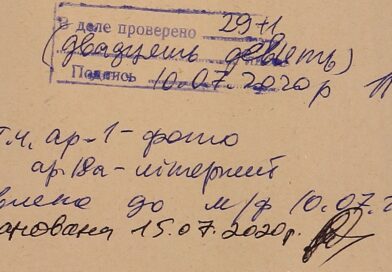 В деле проверено 29+1
(двадцать девять)
Подпись 10.07.2020р
т.ч. ар.1-фото
ар.18а-літерний
влено до м/ф 10.07.2
анована 15.07.2020р.